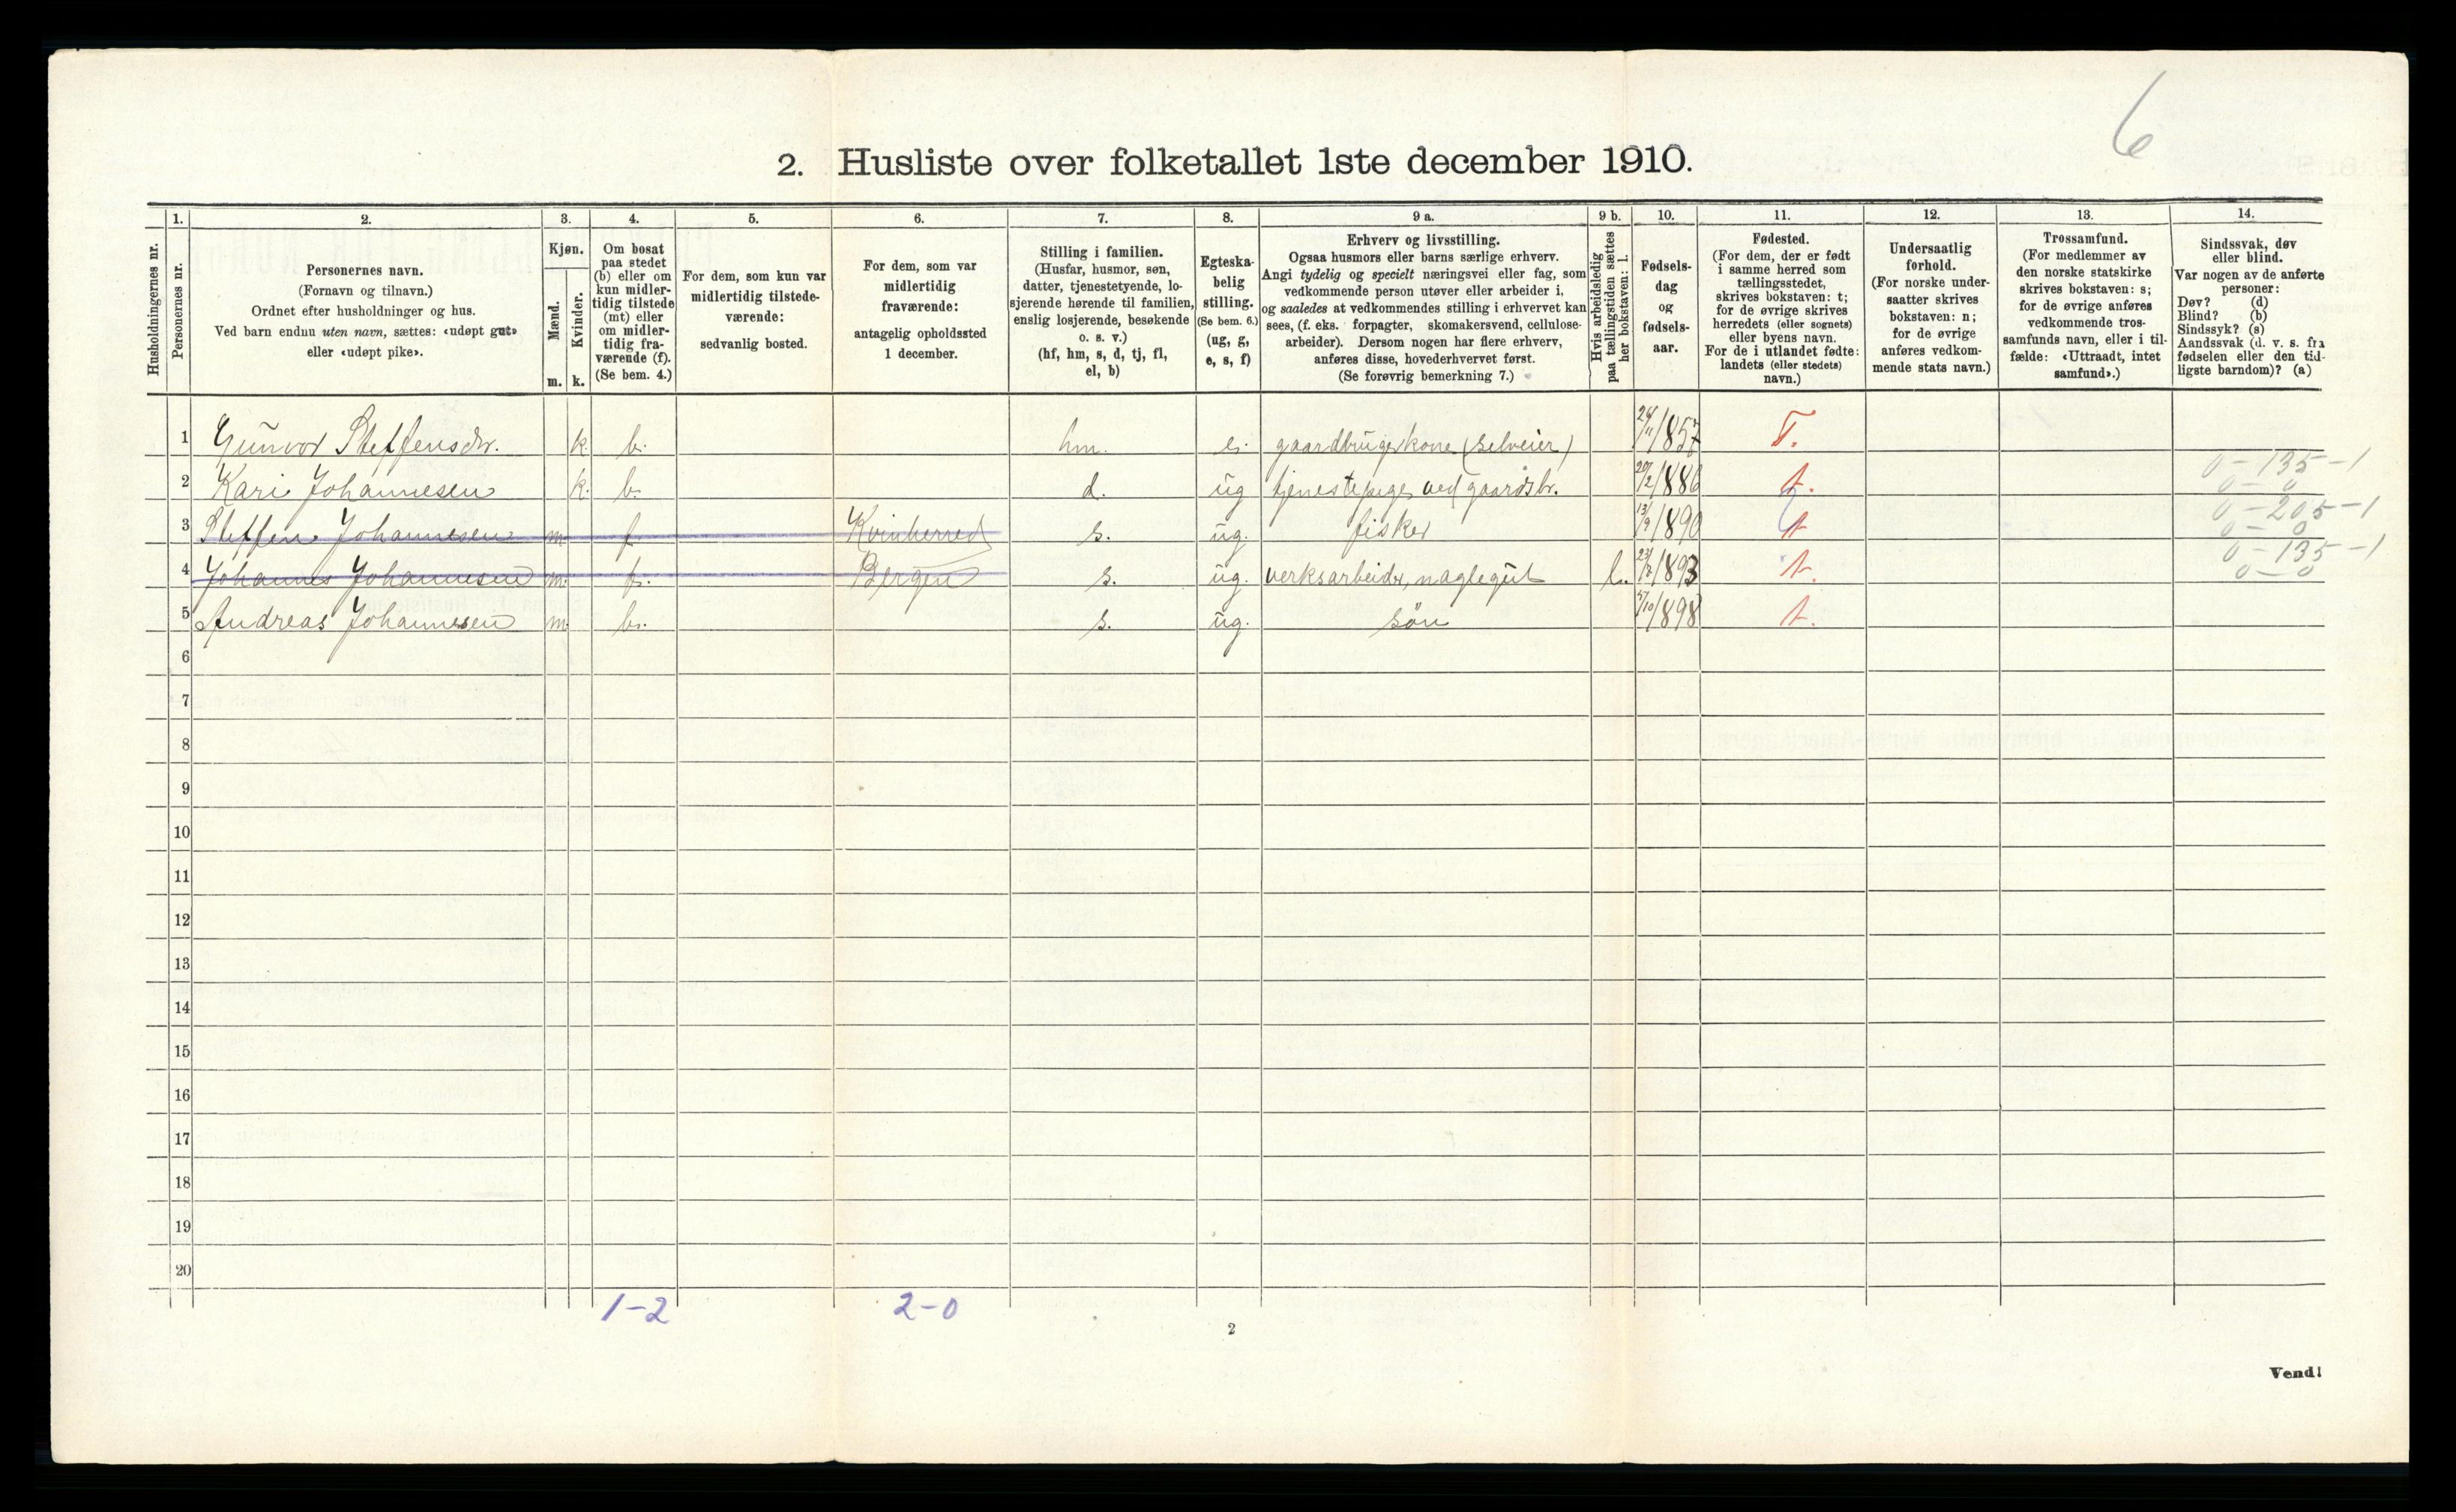 6
2. Husliste over folketallet 1ste december 1910.
Husholdningernes nr.
1. Personernes nr.
2. Personernes navn.
(Fornavn og tilnavn.)
Ordnet efter husholdninger og hus.
Ved barn endnu uten navn, sættes: «udøpt gut»
eller «udøpt pike».
3. Kjøn.
Mænd. m.
Kvinder. k.
4. Om bosat
paa stedet
(b) eller om
kun midler-
tidig tilstede
(mt) eller
om midler-
tidig fra-
værende (f).
(Se bem. 4.)
5. For dem, som kun var
midlertidig tilstede-
værende:
sedvanlig bosted.
6. For dem, som var
midlertidig
fraværende:
antagelig opholdssted
1 december.
7. Stilling i familien.
(Husfar, husmor, søn,
datter, tjenestetyende, lo-
sjerende hørende til familien,
enslig losjerende, besøkende
o. s. v.)
(hf, hm, s, d, tj, fl,
el, b)
8. Egteska-
belig
stilling.
(Se bem. 6.)
(ug, g,
e, s, f)
9 a. Erhverv og livsstilling.
Ogsaa husmors eller barns særlige erhverv.
Angi tydelig og specielt næringsvei eller fag, som
vedkommende person utøver eller arbeider i,
og saaledes at vedkommendes stilling i erhvervet kan
sees, (f. eks. forpagter, skomakersvend, cellulose-
arbeider). Dersom nogen har flere erhverv,
anføres disse, hovederhvervet først.
(Se forøvrig bemerkning 7.)
9 b. Hvis arbeidsledig
paa tællingstiden sættes
her bokstaven: l.
10. Fødsels-
dag
og
fødsels-
aar.
11. Fødested.
(For dem, der er født
i samme herred som
tællingsstedet,
skrives bokstaven: t;
for de øvrige skrives
herredets (eller sognets)
eller byens navn.
For de i utlandet fødte:
landets (eller stedets)
navn.)
12. Undersaatlig
forhold.
(For norske under-
saatter skrives
bokstaven: n;
for de øvrige
anføres vedkom-
mende stats navn.)
13. Trossamfund.
(For medlemmer av
den norske statskirke
skrives bokstaven: s;
for de øvrige anføres
vedkommende tros-
samfunds navn, eller i til-
fælde: «Uttraadt, intet
samfund».)
14. Sindssvak, døv
eller blind.
Var nogen av de anførte
personer:
Døv? (d)
Blind? (b)
Sindssyk? (s)
Aandssvak (d. v. s. fra
fødselen eller den tid-
ligste barndom)? (a)
1 Gunvor Steffensdr. k. b. hm. e. gaardbrugerkone (selveier) /1857 T.
2 Kari Johannesen k. b. d. ug tjenestepige ved gaardsbr. 20/2 1886 t. 0-135-1
0-0
3 Steffen Johannesen m f Kvinherred s. ug. fisker 13/9 1890 t 0-205-1
0-0
4 Johannes Johannesen m. f. Bergen s. ug. verksarbeider, naglegut l. /1893 t. 0-135-1
0-0
5 Andreas Johannesen m b. s. ug. søn /10 1898 t.
6
7
8
9
10
11
12
13
14
15
16
17
18
19
20
1-2 2-0
2
Vend!